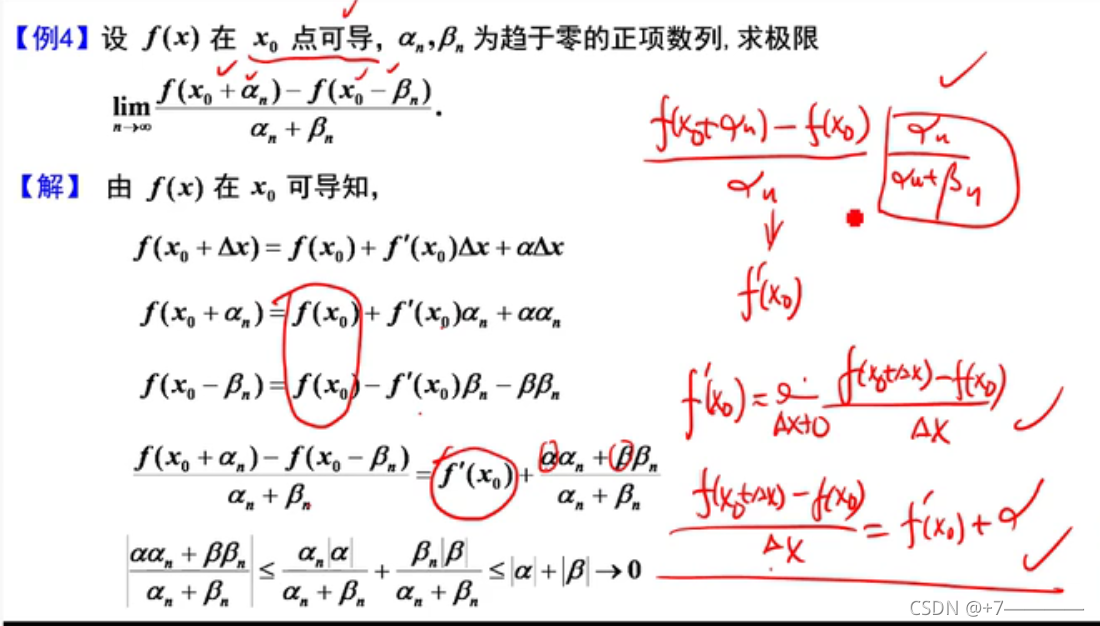 【例4】设 f(x) 在 x₀ 点可导, αₙ,βₙ 为趋于零的正项数列, 求极限
lim_{n→∞} (f(x₀ + αₙ) − f(x₀ − βₙ)) / (αₙ + βₙ).
【解】 由 f(x) 在 x₀ 可导知,
f(x₀ + Δx) = f(x₀) + f′(x₀)Δx + αΔx
f(x₀ + αₙ) = f(x₀) + f′(x₀)αₙ + ααₙ
f(x₀ − βₙ) = f(x₀) − f′(x₀)βₙ − ββₙ
(f(x₀ + αₙ) − f(x₀ − βₙ)) / (αₙ + βₙ) = f′(x₀) + (ααₙ + ββₙ) / (αₙ + βₙ)
|(ααₙ + ββₙ) / (αₙ + βₙ)| ≤ αₙ|α| / (αₙ + βₙ) + βₙ|β| / (αₙ + βₙ) ≤ |α| + |β| → 0
(f(x₀+αₙ) − f(x₀)) / αₙ · αₙ / (αₙ+βₙ)
↓
f′(x₀)
f′(x₀) = lim_{Δx→0} (f(x₀+Δx) − f(x₀)) / Δx
(f(x₀+Δx) − f(x₀)) / Δx = f′(x₀) + α
CSDN @+7————